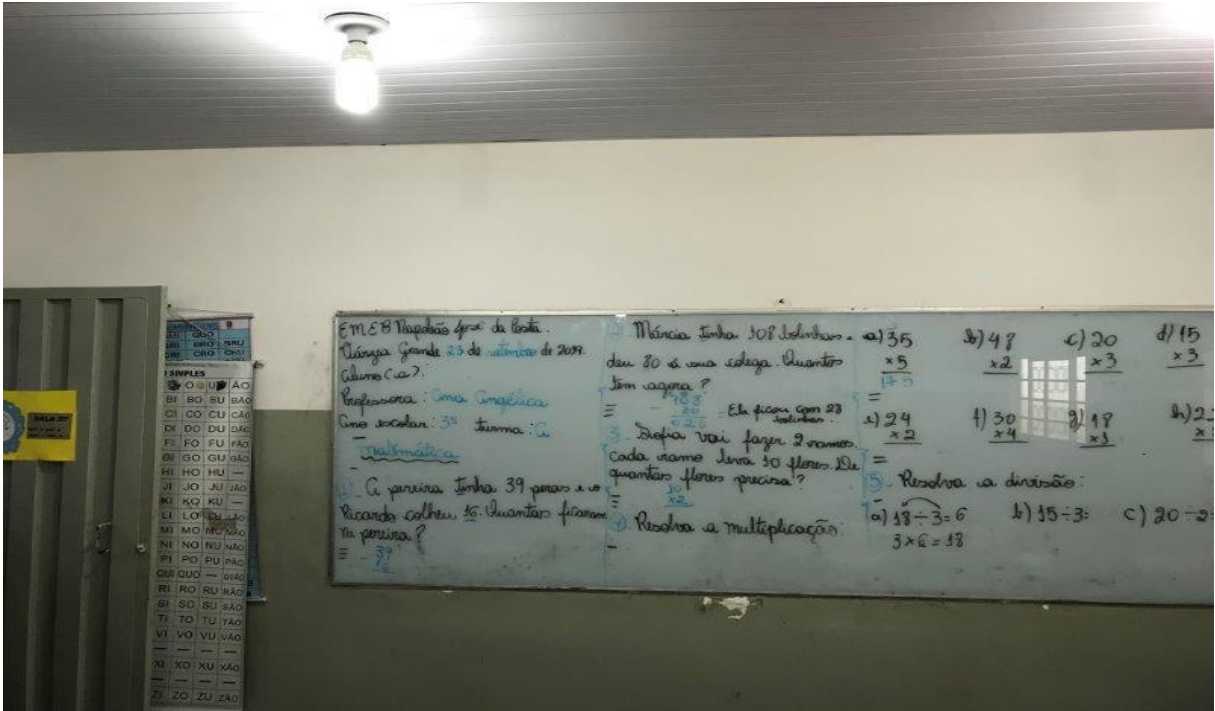 SALA 07
SIMPLES
O U ÃO
BI BO BU BÃO
CI CO CU CÃO
DI DO DU DÃO
FI FO FU FÃO
GI GO GU GÃO
HI HO HU —
JI JO JU JÃO
KI KO KU —
LI LO LU LÃO
MI MO MU MÃO
NI NO NU NÃO
PI PO PU PÃO
QUI QUO — QUÃO
RI RO RU RÃO
SI SO SU SÃO
TI TO TU TÃO
VI VO VU VÃO
— — — —
XI XO XU XÃO
— — — —
ZI ZO ZU ZÃO
EMEB Napoleão José da Costa.
Várzea Grande 23 de setembro de
Aluno(a):
Professora: Ana Angélica
Ano escolar: 3º turma: A
matemática
1- A pereira tinha 39 peras e o
Ricardo colheu 16. Quantas ficaram
na pereira?
- 39
16
2- Márcia tinha 108 bolinhas.
deu 80 a sua colega. Quantos
têm agora?
108
- 80
028
Ela ficou com 28
bolinhas.
3- Sofia vai fazer 2 ramos.
Cada ramo leva 10 flores. De
quantas flores precisa?
10
x2
4- Resolva a multiplicação:
a) 35 b) 48 c) 20 d) 15
x5 x2 x3 x3
175
e) 24 f) 30 g) 18
x2 x4 x1
h) 2
5- Resolva a divisão:
a) 18÷3=6 b) 15÷3= c) 20÷2=
3x6=18